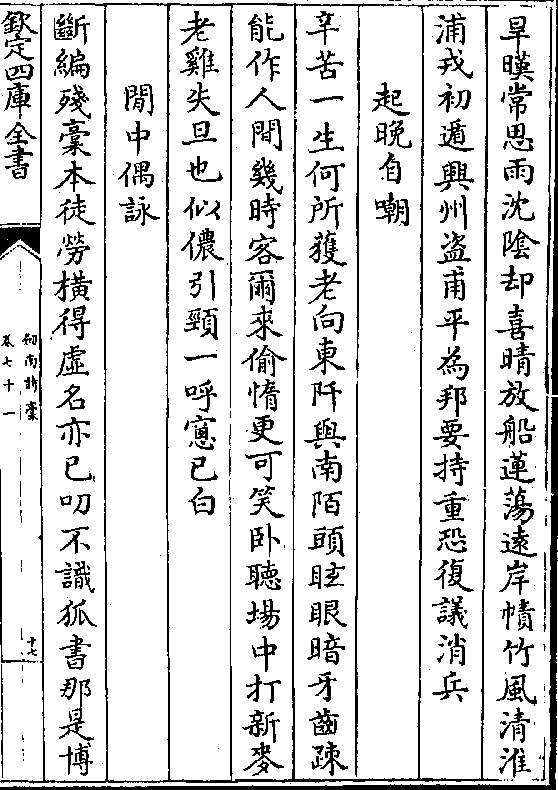 旱暵常思雨沈陰却喜晴放船蓮蕩遠岸幘竹風清淮
浦戎初遁興州盗甫平為邦要持重恐復議消兵
起晚自嘲
辛苦一生何所獲老向東阡與南陌頭眩眼暗牙齒疎
能作人間幾時客爾來偷惰更可笑卧聴場中打新麥
老雞失旦也似儂引頸一呼窻已白
閒中偶詠
斷編殘稾本徒勞橫得虛名亦已叨不識狐書那是博
欽定四庫全書
劒南詩稾
卷七十一
十七